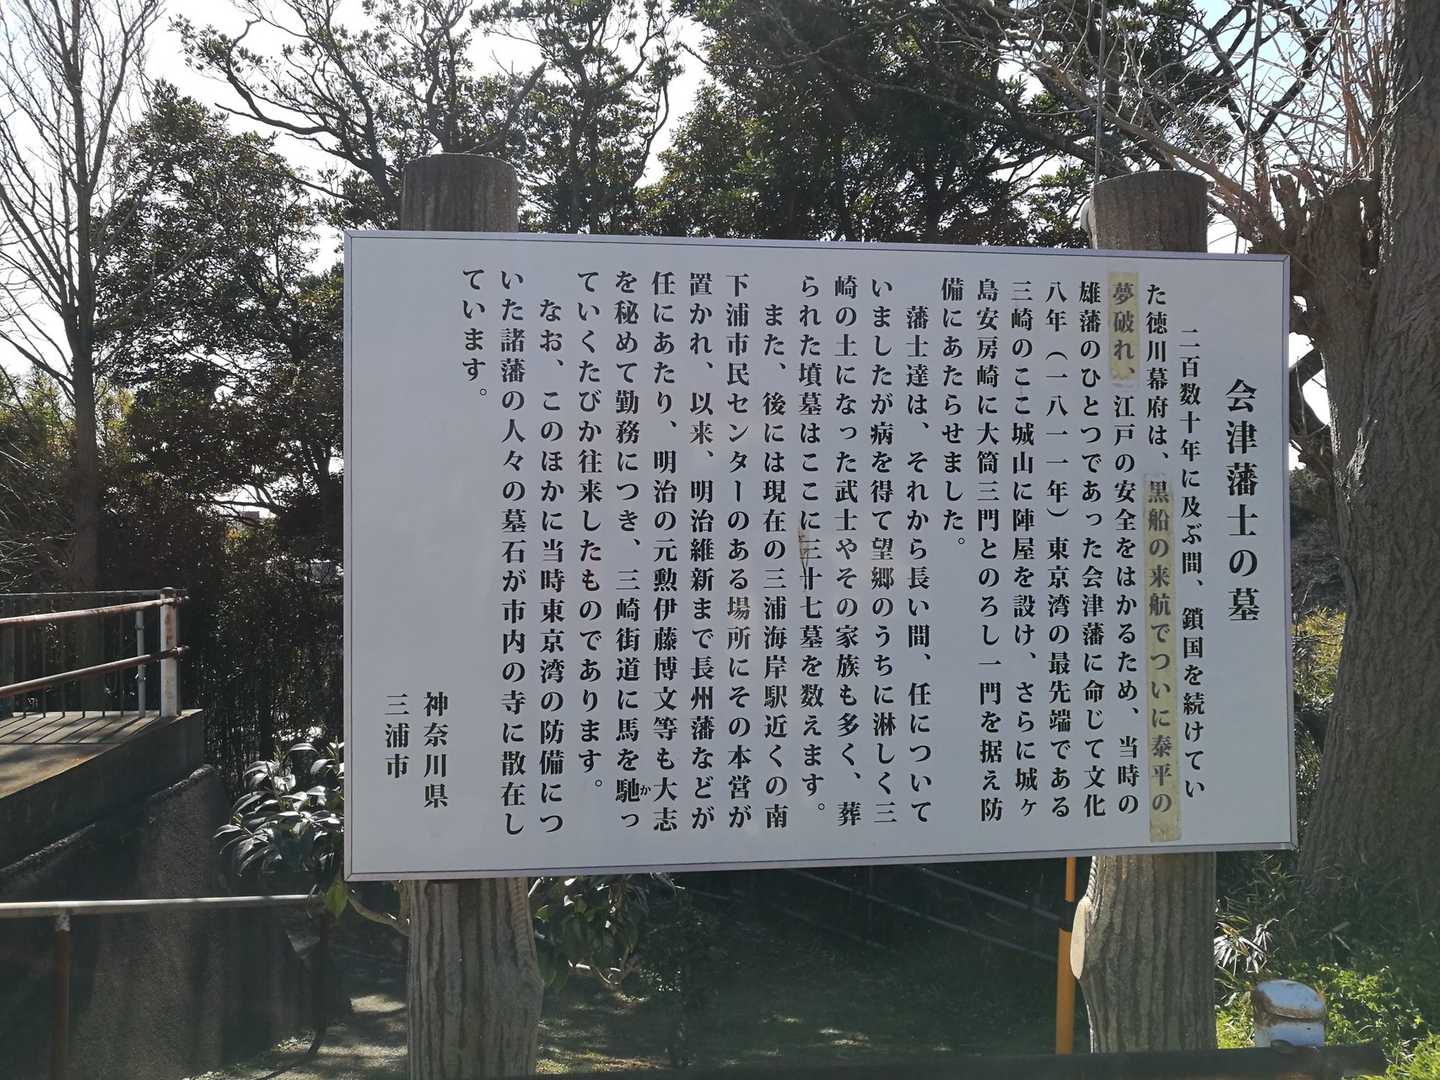 会津藩士の墓
二百数十年に及ぶ間、鎖国を続けてい
た徳川幕府は、黒船の来航でついに泰平の
夢破れ、江戸の安全をはかるため、当時の
雄藩のひとつであった会津藩に命じて文化
八年(一八一一年)東京湾の最先端である
三崎のここ城山に陣屋を設け、さらに城ヶ
島安房崎に大筒三門とのろし一門を据え防
備にあたらせました。
藩士達は、それから長い間、任について
いましたが病を得て望郷のうちに淋しく三
崎の土になった武士やその家族も多く、葬
られた墳墓はここに三十七墓を数えます。
また、後には現在の三浦海岸駅近くの南
下浦市民センターのある場所にその本営が
置かれ、以来、明治維新まで長州藩などが
任にあたり、明治の元勲伊藤博文等も大志
を秘めて勤務につき、三崎街道に馬を馳かっ
ていくたびか往来したものであります。
なお、このほかに当時東京湾の防備につ
いた諸藩の人々の墓石が市内の寺に散在し
ています。
神奈川県
三浦市